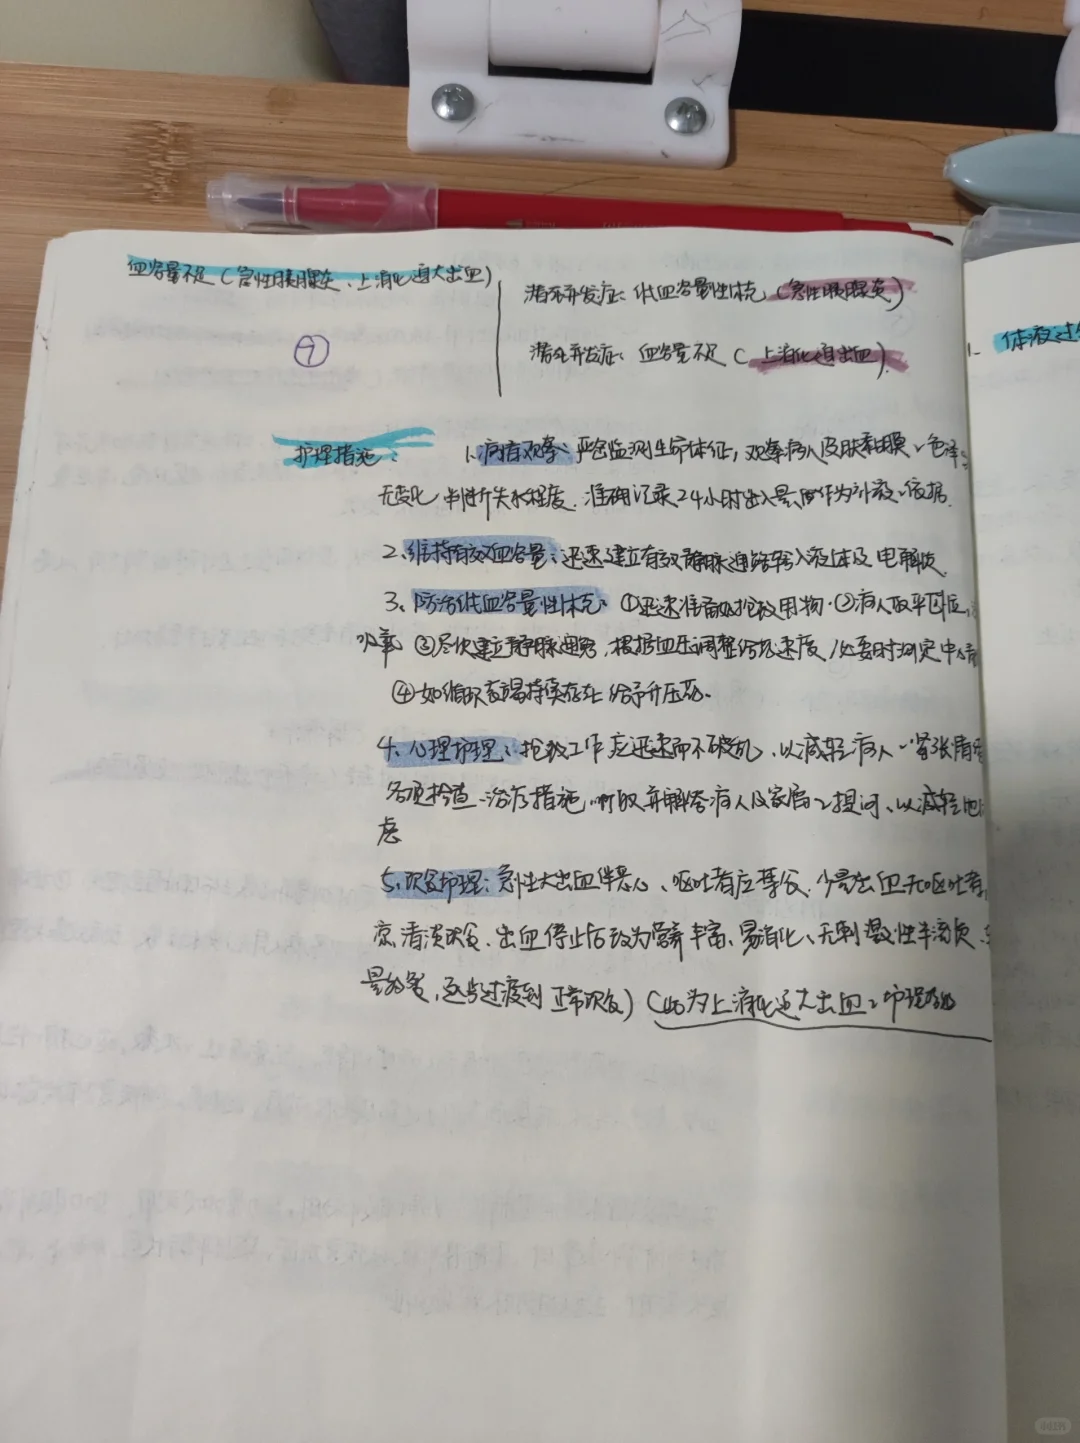 血容量不足(急性胰腺炎、上消化道大出血)
⑦
潜在并发症:低血容量性休克(急性胰腺炎)
潜在并发症:血容量不足(上消化道出血)
护理措施:
1、病情观察:严密监测生命体征,观察病人皮肤黏膜、色泽
无变化 判断失水程度.准确记录24小时出入量,作为补液、依据
2、维持有效血容量:迅速建立有效静脉通路输入液体及电解质
3、防治低血容量性休克:①迅速准备好抢救用物.②病人取平卧位,
吸氧 ③尽快建立静脉通路,根据血压调整给药速度,必要时测定中心静
④如循环衰竭持续存在 给予升压药.
4、心理护理:抢救工作应迅速而不忙乱,以减轻病人、紧张情
各项检查、治疗措施,听取并解答病人及家属之提问、以减轻他
虑
5、饮食护理:急性大出血伴恶心、呕吐者应禁食.少量出血无呕吐者,
凉清淡饮食、出血停止后改为营养丰富、易消化、无刺激性半流质、
量多餐,逐步过渡到正常饮食)(此为上消化道大出血之护理措施
1、体液过